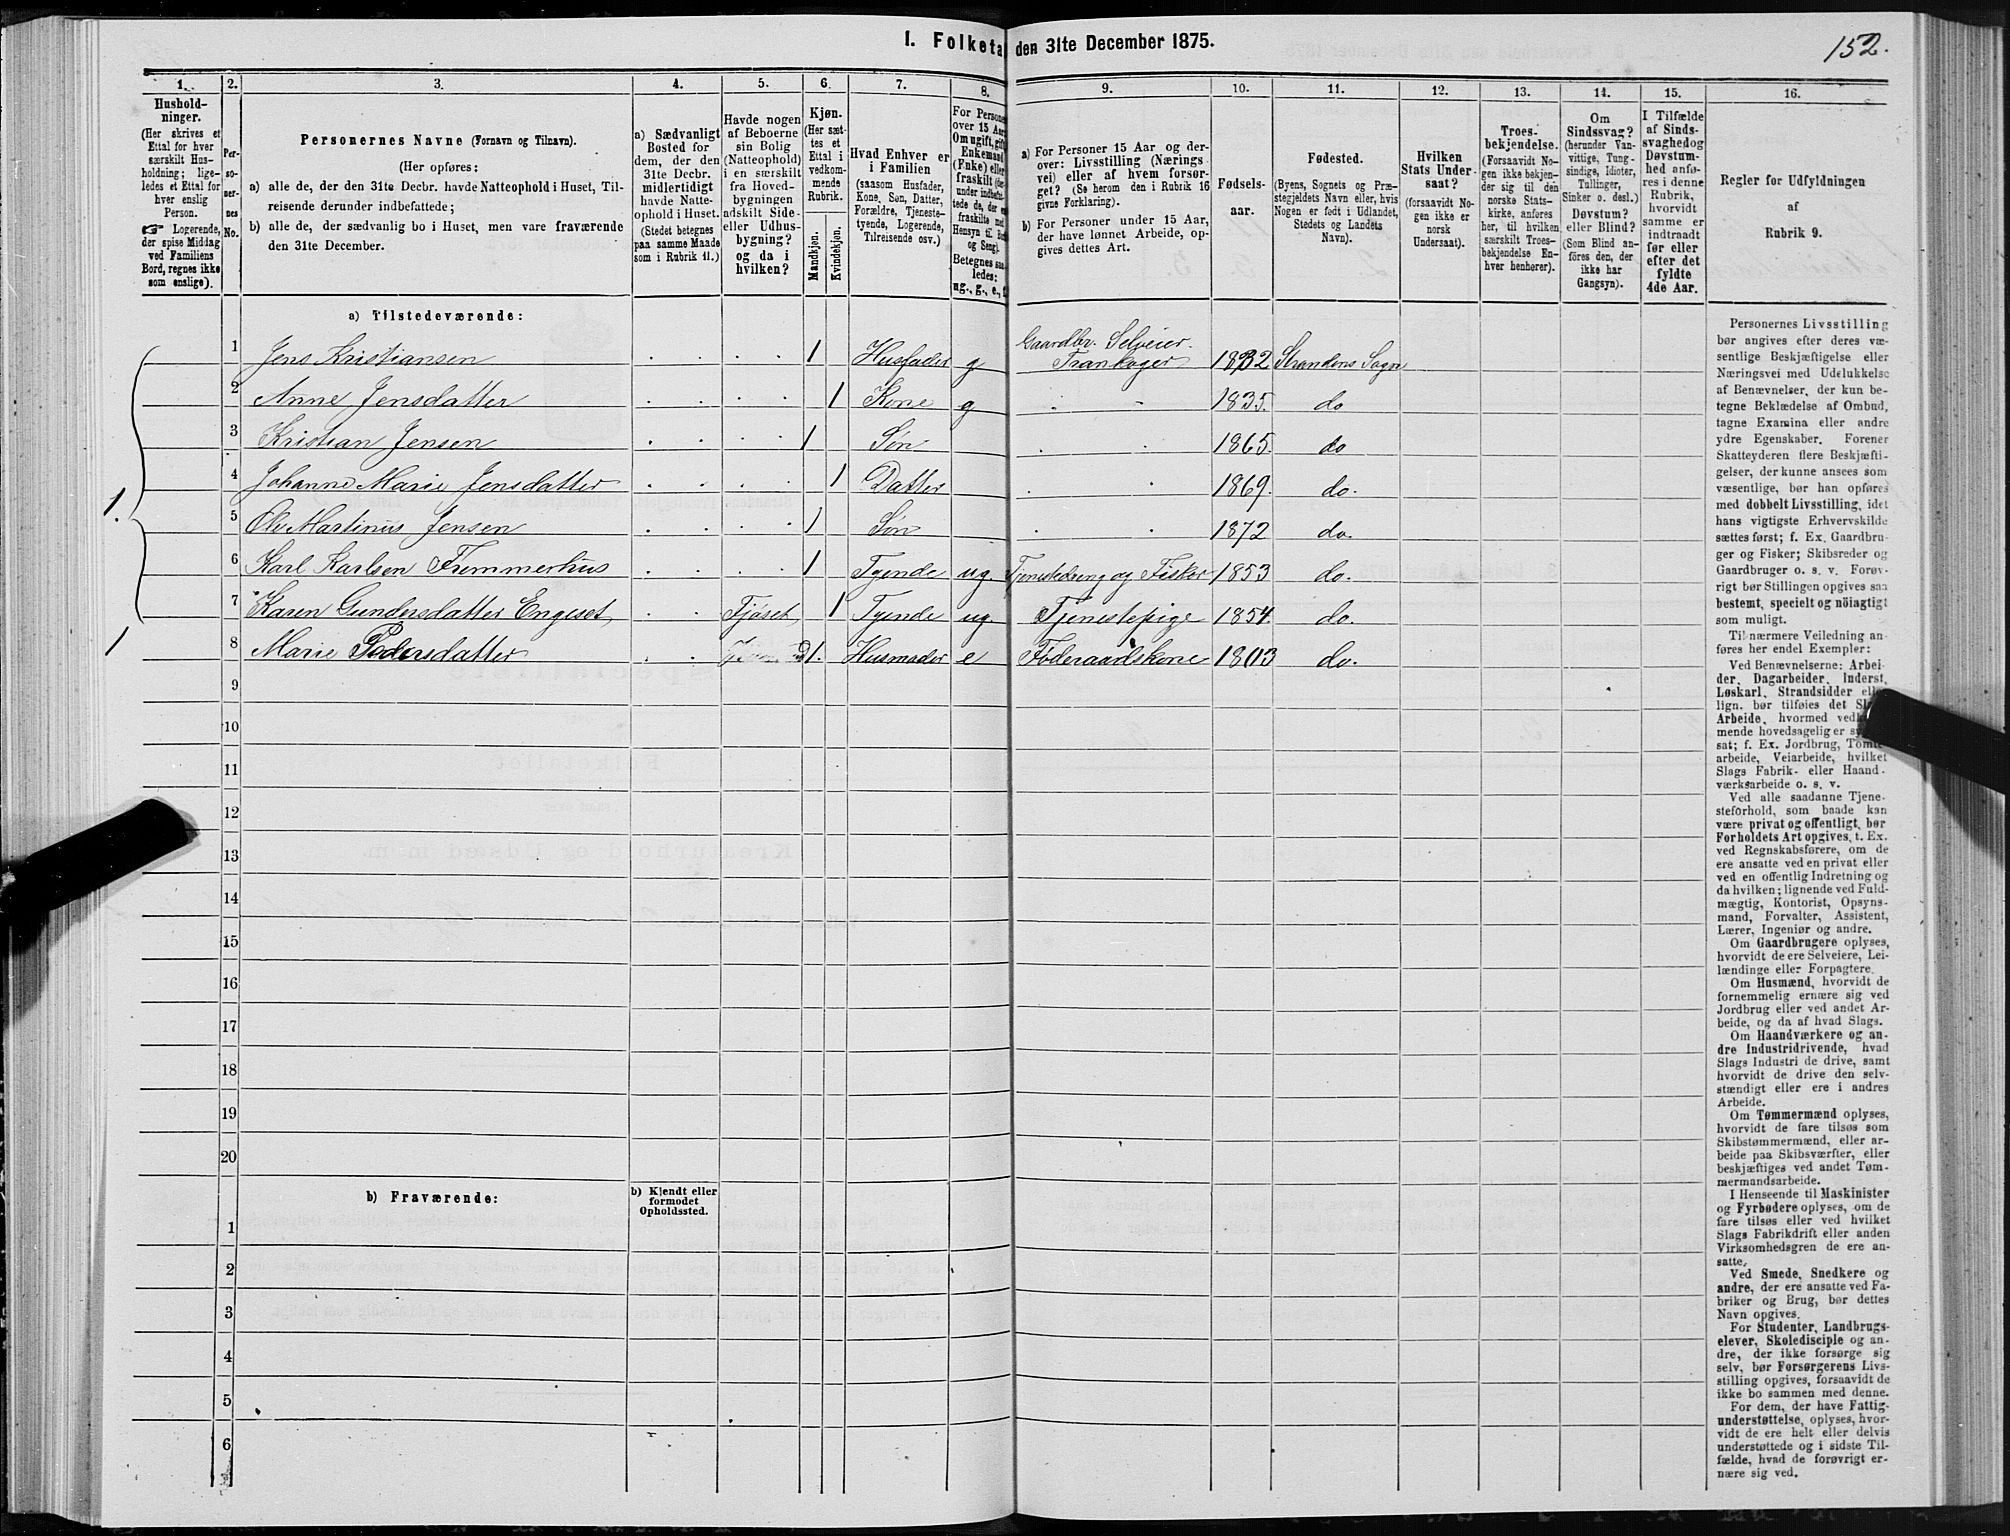 I. Folketa den 31te December 1875.
152.
1. 2. 3. 4. 5. 6. 7. 8. 9. 10. 11. 12. 13. 14. 15. 16.
Hushold-
ninger.
(Her skrives et
Ettal for hver
særskilt Hus-
holdning; lige-
ledes et Ettal for
hver enslig
Person.
☞ Logerende,
der spise Middag
ved Familiens
Bord, regnes ikke
som enslige).
Per-
so-
ner-
nes
No.
Personernes Navne (Fornavn og Tilnavn).
(Her opføres:
a) alle de, der den 31te Decbr. havde Natteophold i Huset, Til-
reisende derunder indbefattede;
b) alle de, der sædvanlig bo i Huset, men vare fraværende
den 31te December.
a) Sædvanligt
Bosted for
dem, der den
31te Decbr.
midlertidigt
havde Natte-
ophold i Huset.
(Stedet betegnes
paa samme Maade
som i Rubrik 11.)
Havde nogen
af Beboerne
sin Bolig
(Natteophold)
i en særskilt
fra Hoved-
bygningen
adskilt Side-
eller Udhus-
bygning?
og da i
hvilken?
Kjøn.
(Her sæt-
tes et
Ettal i
vedkom-
mende
Rubrik.
Mandkjøn.
Kvindekjøn.
Hvad Enhver er
i Familien
(saasom Husfader,
Kone, Søn, Datter,
Forældre, Tjeneste-
tyende, Logerende,
Tilreisende osv.)
For Persone
over 15 Aar:
Om ugift, gift,
Enkemand
(Enke) eller
fraskilt
Hensyn til
og Seng).
Betegnes saa-
ledes:
ug., g., e.,
a) For Personer 15 Aar og der-
over: Livsstilling (Nærings
vei) eller af hvem forsør-
get? (Se herom den i Rubrik 16
givne Forklaring).
b) For Personer under 15 Aar,
der have lønnet Arbeide, op-
gives dettes Art.
Fødsels-
aar.
Fødested.
(Byens, Sognets og Præ-
stegjeldets Navn eller, hvis
Nogen er født i Udlandet,
Stedets og Landets
Navn).
Hvilken
Stats Under-
saat?
(forsaavidt No-
gen ikke er
norsk
Undersaat).
Troes-
bekjendelse.
(Forsaavidt No-
gen ikke bekjen-
der sig til den
norske Stats-
kirke, anføres
her, til hvilken
særskilt Troes-
bekjendelse En-
hver henhører).
Om
Sindssvag?
(herunder Van-
vittige, Tung-
sindige, Idioter,
Tullinger,
Sinker o. desl.)
Døvstum?
eller Blind?
(Som Blind an-
føres den, der
ikke har
Gangsyn).
I Tilfælde
af Sinds-
svaghed og
Døvstum-
hed anfø-
res i denne
Rubrik,
hvorvidt
samme er
indtraadt
før eller
efter det
fyldte
4de Aar.
Regler for Udfyldningen
af
Rubrik 9.
a) Tilstedeværende:
1 Jens Kristiansen 1 Husfader g Gaardbr. Selveier. Trankoger 1832 Strandens Sogn
2 Anne Jensdatter 1 Kone g 1835. do
3 Kristian Jensen 1 Søn 1865. do
4 Johanne Marie Jensdatter 1 Datter 1869. do.
1. 5 Ole Martinus Jensen 1 Søn 1872 do.
6 Karl Karlsen Fremmerhus 1 Tyende ug. Tjenestedreng og Fisker 1853 do.
7 Karen Gundersdatter Engeset Fjøset 1 Tyende ug. Tjenestepige 1854. do.
1 8 Marie Pedersdatter 1. Husmoder e Føderaadskone 1803 do.
9
10
11
12
13
14
15
16
17
18
19
20
b) Fraværende:
b) Kjendt eller
formodet
Opholdssted.
1
2
3
4
5
6
Personernes Livsstilling
bør angives efter deres væ-
sentlige Beskjæftigelse eller
Næringsvei med Udelukkelse
af Benævnelser, der kun be-
tegne Beklædelse af Ombud,
tagne Examina eller andre
ydre Egenskaber. Forener
Skatteyderen flere Beskjæfti-
gelser, der kunne ansees som
væsentlige, bør han opføres
med dobbelt Livsstilling, idet
hans vigtigste Erhvervskilde
sættes først; f. Ex. Gaardbru-
ger og Fisker; Skibsreder og
Gaardbruger o. s. v. Forøv-
rigt bør Stillingen opgives saa
bestemt, specielt og nöiagtigt
som muligt.
Til nærmere Veiledning an-
føres her endel Exempler:
Ved Benævnelserne: Arbei-
der, Dagarbeider, Inderst,
Løskarl, Strandsidder
lign. bør tilføies det
Arbeide, hvormed
mende hovedsagelig er
sat; f. Ex. Jordbrug,
arbeide, Veiarbeide, hvilket
Slags Fabrik- eller Haand-
værksarbeide o. s. v.
Ved alle saadanne Tjene-
steforhold, som baade kan
være privat og offentligt, bør
Forholdets Art opgives, t. Ex.
ved Regnskabsførere, om de
ere ansatte ved en privat eller
ved en offentlig Indretning og
da hvilken; lignende ved Fuld-
mægtig, Kontorist, Opsyns-
mand, Forvalter, Assistent,
Lærer, Ingeniør og andre.
Om Gaardbrugere oplyses,
hvorvidt de ere Selveiere, Lei-
lændinge eller Forpagtere.
Om Husmænd, hvorvidt de
fornemmelig ernære sig ved
Jordbrug eller ved andet Ar-
beide, og da af hvad Slags.
Om Haandværkere og an-
dre Industridrivende, hvad
Slags Industri de drive, samt
hvorvidt de drive den selv-
stændigt eller ere i andres
Arbeide.
Om Tømmermænd oplyses,
hvorvidt de fare tilsøs som
Skibstømmermænd, eller ar-
beide paa Skibsværfter, eller
beskjæftiges ved andet Tøm-
mermandsarbeide.
I Henseende til Maskinister
og Fyrbødere oplyses, om de
fare tilsøs eller ved hvilket
Slags Fabrikdrift eller anden
Virksomhedsgren de ere an-
satte.
Ved Smede, Snedkere og
andre, der ere ansatte ved Fa-
briker og Brug, bør dettes
Navn opgives.
For Studenter, Landbrugs-
elever, Skoledisciple og an-
dre, der ikke forsørge sig
selv, bør Forsørgerens Livs-
stilling opgives, forsaavidt de
ikke bo sammen med denne.
For dem, der have Fattig-
understøttelse, oplyses, hvor-
vidt de ere helt eller delvis
understøttede og i sidste Til-
fælde, hvad de forøvrigt er-
nære sig ved.